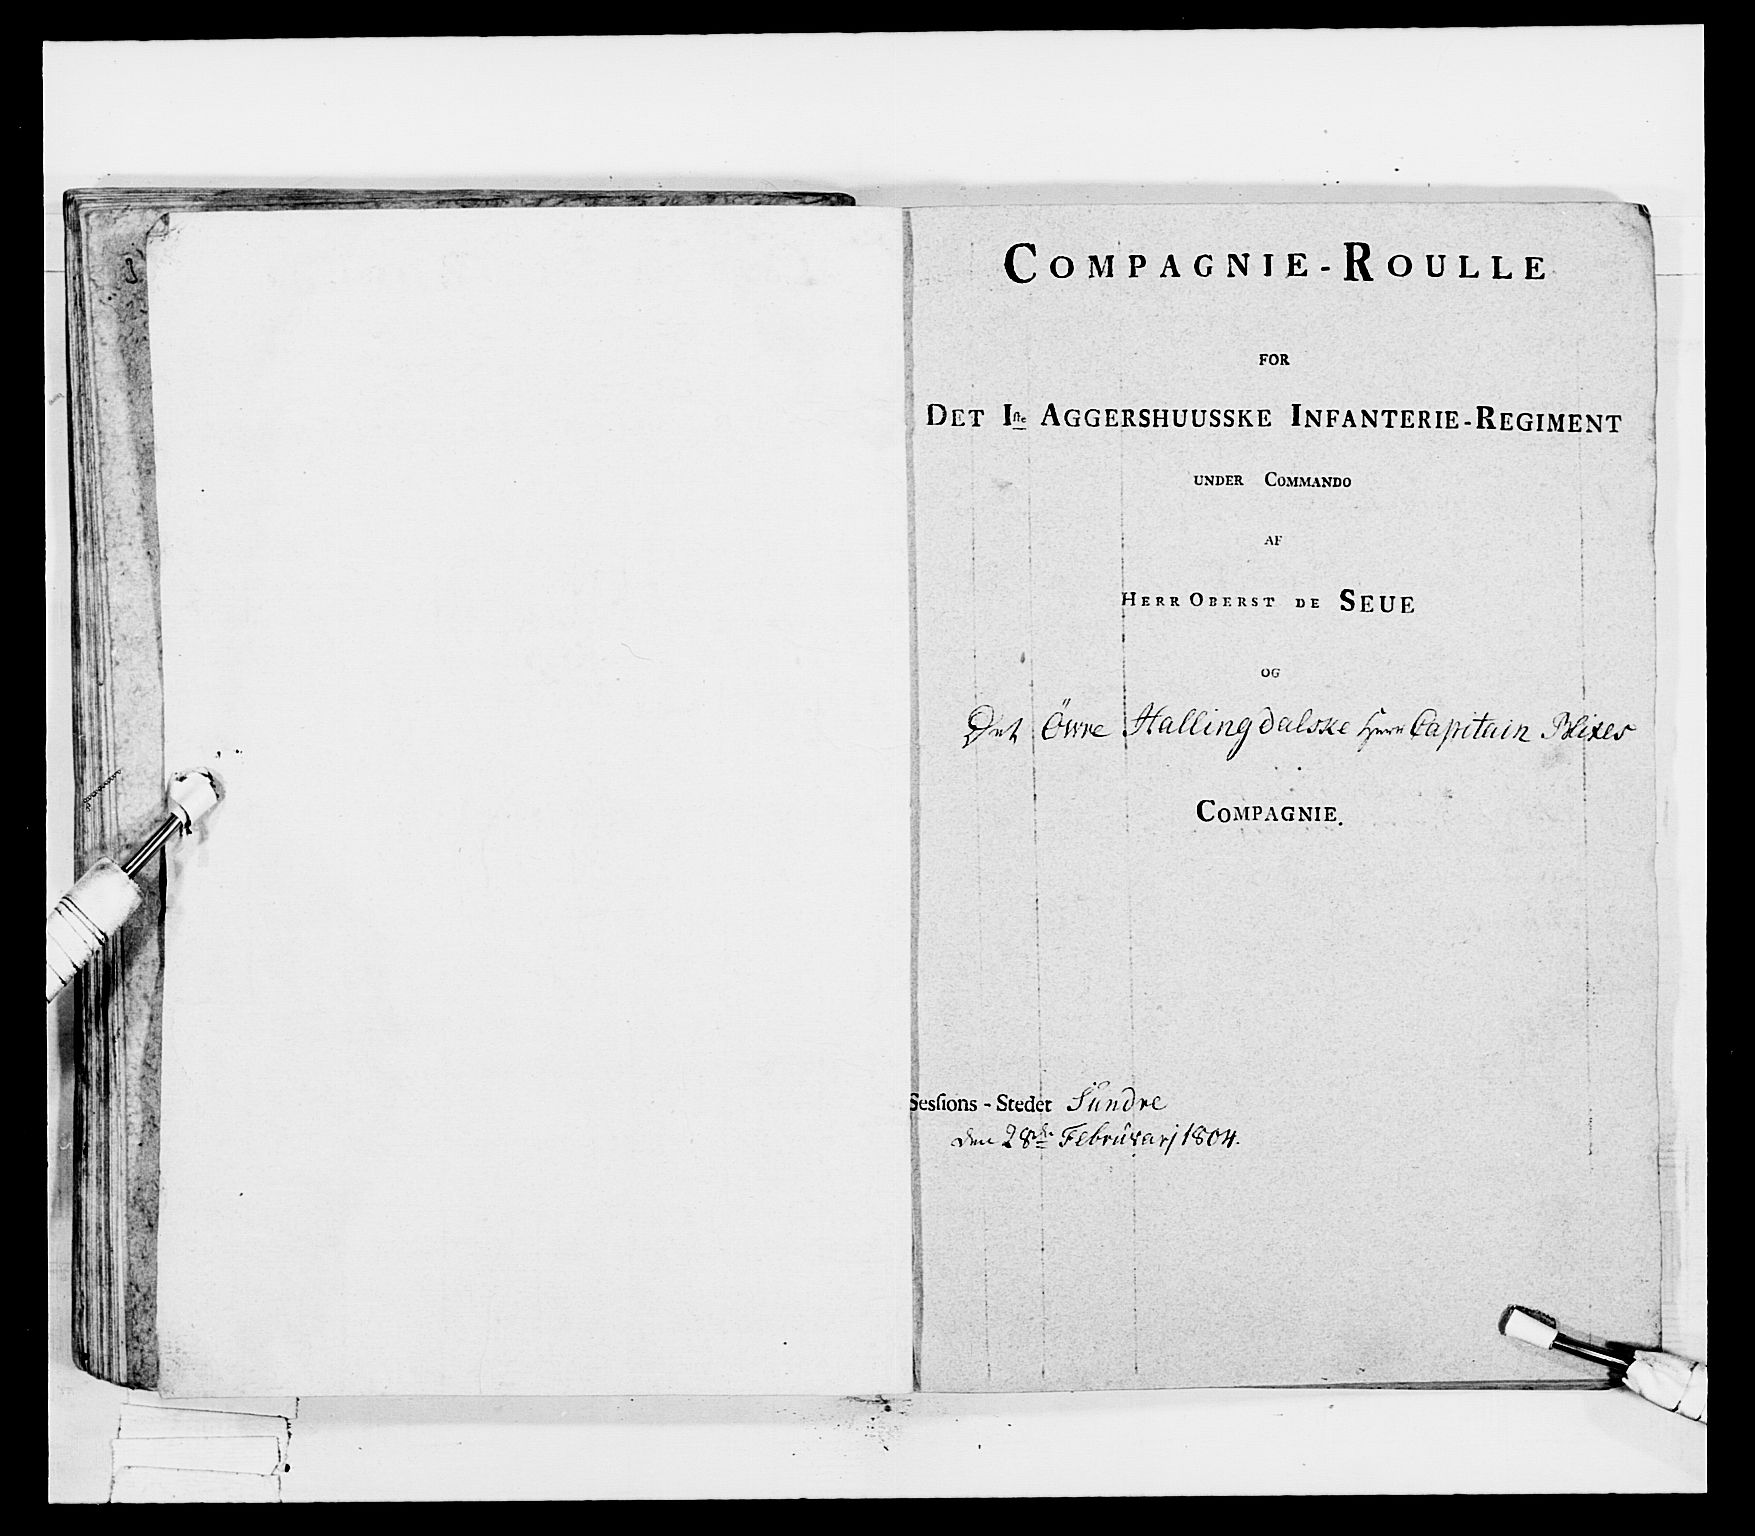 COMPAGNIE-ROULLE
FOR
DET Iste AGGERSHUUSSKE INFANTERIE-REGIMENT
UNDER COMMANDO
AF
HERR OBERST DE SEUE
OG
Det Öwre Hallingdalske Herr Capitain Blixes
COMPAGNIE.
Sesſions - Stedet Sundre
den 28de Februarj 1804.